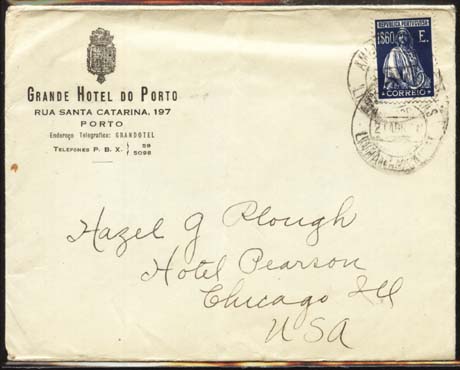 GRANDE HOTEL DO PORTO
RUA SANTA CATARINA, 197
PORTO
Endereço Telegrafico: GRANDOTEL
TELEFONES P. B. X. 59
5098
REPUBLICA PORTUGUESA
1$60 E.
CORREIO
Hazel G Plough
Hotel Pearson
Chicago Ill
USA